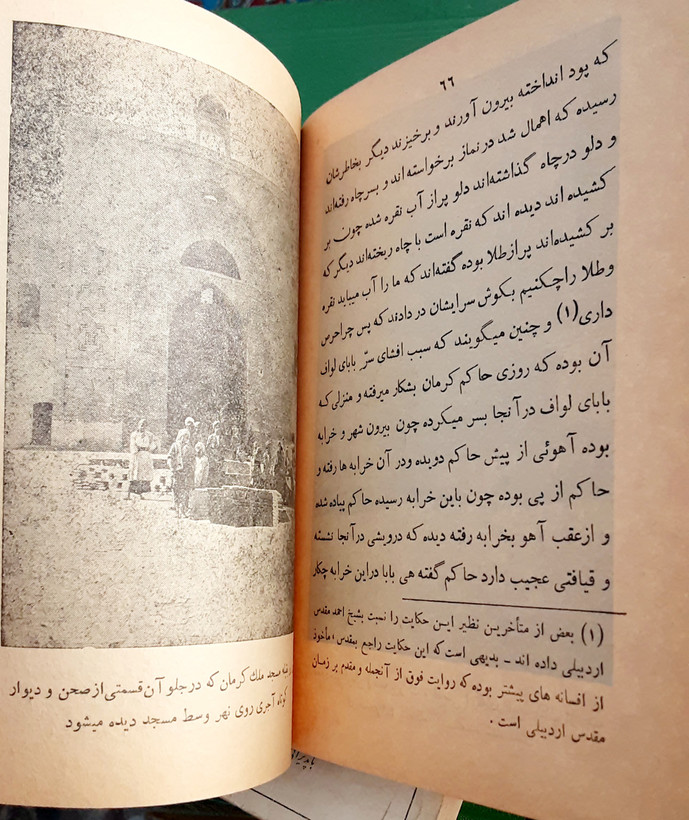 ۶۶
که پود انداخته بیرون آورند و برخیزند دیگر بخاطرشان
رسیده که اهمال شد در نماز برخواسته‌اند و بسر چاه رفته‌اند
و دلو در چاه گذاشته‌اند دلو پر از آب نقره شده چون بر
کشیده اند دیده اند که نقره است با چاه ریخته‌اند دیگر که
بر کشیده‌اند پر از طلا بوده گفته‌اند که ما را آب میباید نقره
و طلا را چکنیم بکوش سرایشان در دادند که پس چرا حرس
داری (۱) و چنین میگویند که سبب افشای سرّ بابای لواف
آن بوده که روزی حاکم کرمان بشکار میرفته و منزلی که
بابای لواف در آنجا بسر میکرده چون بیرون شهر و خرابه
بوده آهوئی از پیش حاکم دویده و در آن خرابه ها رفته و
حاکم از پی بوده چون باین خرابه رسیده حاکم پیاده شده
و از عقب آهو بخرابه رفته دیده که درویشی در آنجا نشسته
و قیافتی عجیب دارد حاکم گفته هی بابا در این خرابه چکار
(۱) بعض از متأخرین نظیر ایـن حکایت را نسبت بشیخ احمد مقدس
اردبیلی داده اند ـ بدیهی است که این حکایت راجع بمقدس، مأخوذ
از افسانه های پیشتر بوده که روایت فوق از آنجمله و مقدم بر زمان
مقدس اردبیلی است .
مسجد ملك کرمان که در جلو آن قسمتی از صحن و دیوار
کوتاه آجری روی نهر وسط مسجد دیده میشود